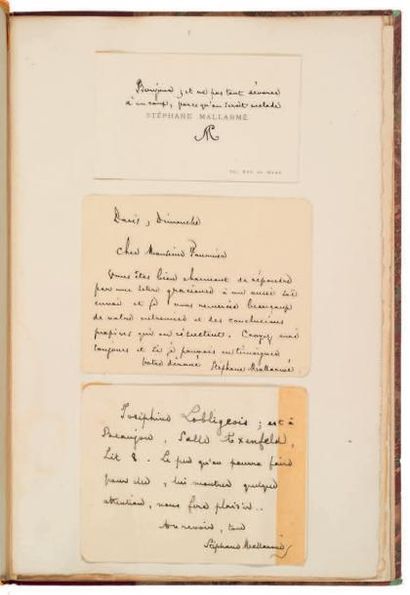 Bonjour ; et ne pas tant
d'un coup, parce qu'on serait malade
STÉPHANE MALLARMÉ
Paris, Dimanche
Cher Monsieur
Vous êtes bien charmant de répondre
par une lettre gracieuse à un
envoi et je vous remercie beaucoup
de votre et des conclusions
propices qui en résultent. Croyez moi
toujours et
Votre dévoué Stéphane Mallarmé
Joséphine Lobligeois ; est à
Beaujon, Salle Axenfeld,
Lit 8. Le peu qu'on pourra faire
pour elle, lui montrer quelque
attention, nous fera plaisir.
Au revoir, tout
Stéphane Mallarmé